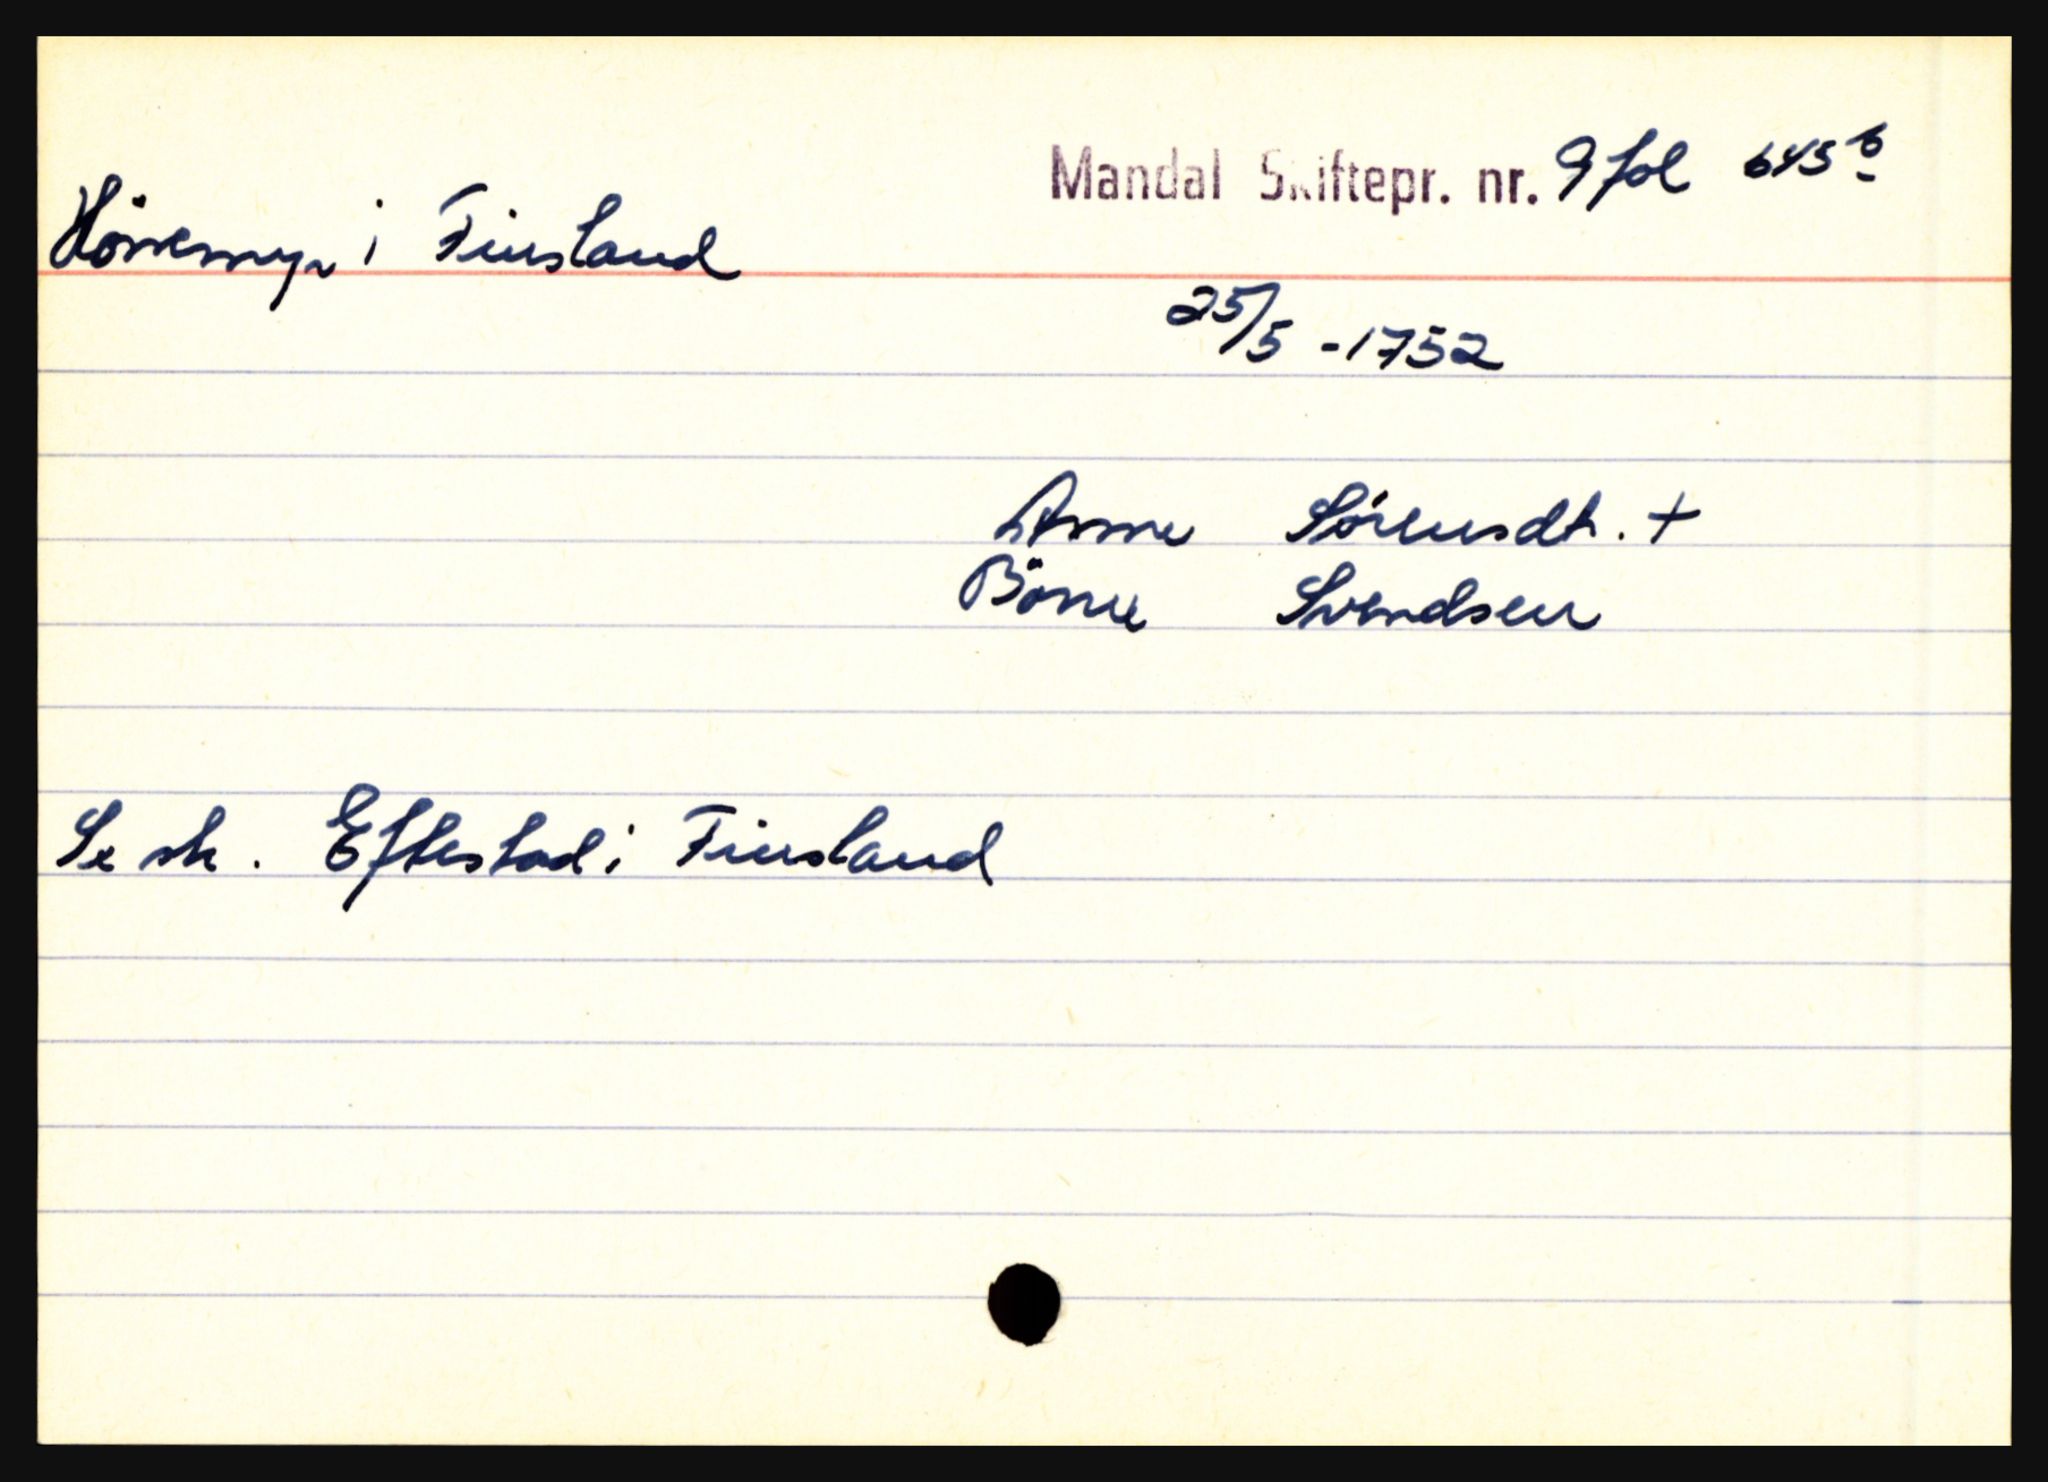 Mandal Skiftepr. nr. 9 fol 645 b
Hönemyr i Finsland
25/5 - 1752
Anne Sörensdt. +
Börre Svendsen
Se sk. Eftestad i Finsland